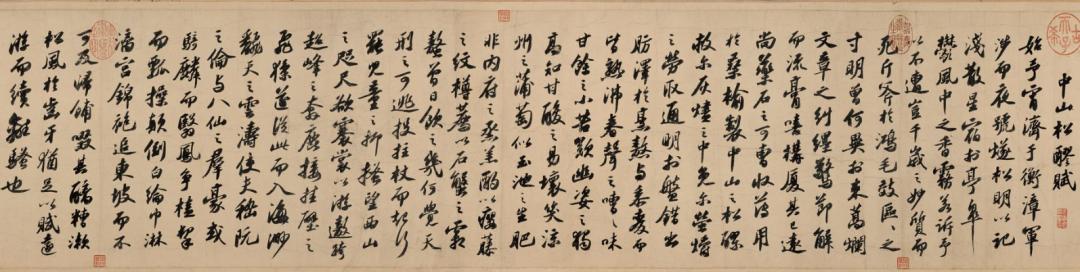 中山松醪賦
始予宵濟于衡漳軍
涉而夜號燧松明以記
淺散星宿於亭皋
鬱風中之香霧若訴予
以不遭豈千歲之妙質而
死斤斧於鴻毛效區區之
寸明曾何異於束蒿爛
文章之糾纏驚節解
而流膏嘻構厦其已遠
尚藥石之可曹收薄用
於桑榆製中山之松醪
救爾灰燼之中免爾螢爝
之勞取通明於盤錯出
肪澤於烹熬與黍麥而
皆熟沸舂聲之嘈嘈味
甘餘之小苦歎幽姿之獨
高知甘酸之易壞笑涼
州之蒲萄似玉池之生肥
非內府之烝羔酌以癭藤
之紋樽薦以石蟹之霜
螯曾日飲之幾何覺天
刑之可逃投拄杖而起行
罷兒童之抑搔望西山
之咫尺欲褰裳以游遨跨
超峰之奔鹿接挂壁之
飛猱遂從此而入海渺
翻天之雲濤使夫嵇阮
之倫與八仙之群豪或
騎麟而翳鳳爭榼挈
而瓢操顛倒白綸巾淋
漓宮錦袍追東坡而不
可及歸餔歠其醨糟漱
松風於齒牙猶足以賦遠
游而續離騷也